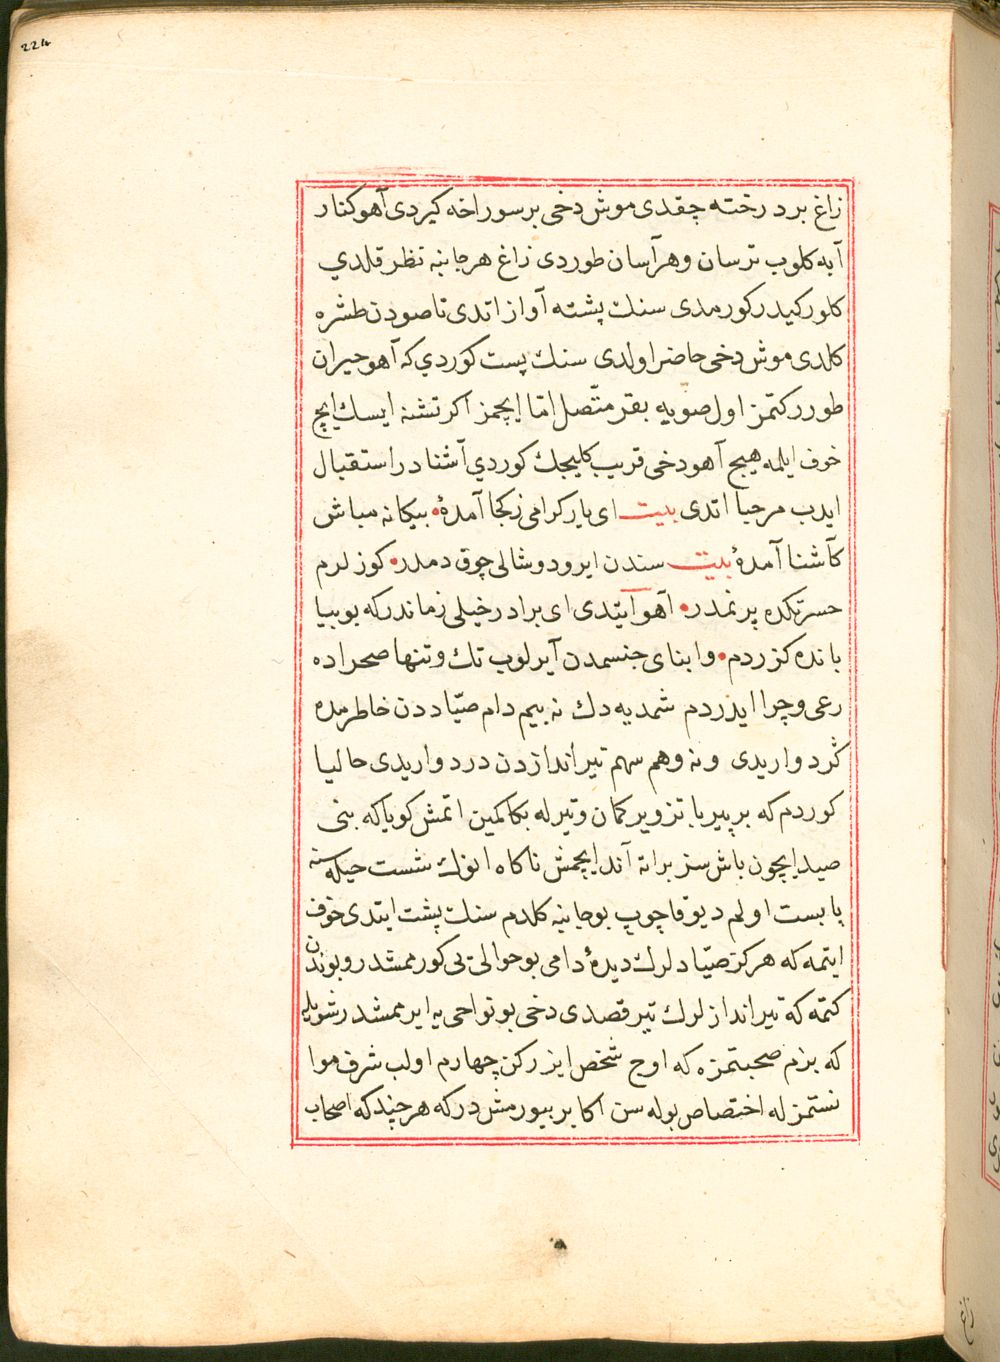 224
زاغ بر درخته چقدی موش دخی بر سوراخه کیردی آهو کنار
آبه کلوب ترسان وهرآسان طوردی زاغ هر جانبه نظر قلدي
کلور کیدر کورمدی سنك پشته آواز اتدی تا صودن طشره
کلدی موش دخی حاضر اولدی سنك پست کوردي که آهو حیران
طورر کتمز اول صویه بقر متّصل امّا ایچمز اکر تشنه ایسك ایچ
خوف ایلمه هیچ آهو دخی قریب کلیجك کوردي آشنادر استقبال
ایدب مرحبا اتدی بیت ای یار کرامی زکجا آمدهٔ بیکانه مباش
کآشنا آمدهٔ بیت سندن ایرو دوشالی چوق دملدر کوزلرم
حسرتکده پر نمدر آهو ایتدی ای برادر خیلی زماندر که بو بیا
بانده کزردم وابنای جنسمدن آیرلوب تك وتنها صحراده
رعی وچرا ایدردم شمدیه دك نه بیم دام صیّاددن خاطرمده
کرد واریدی ونه وهم سهم تیر اندازدن درد واریدی حالیا
کوردم که بر پیر با تزویر کمان وتیرله بکا کمین اتمش کویا که بنی
صید ایچون باش سز براته آند ایچمش ناکاه انوك شست حیله سنه
پا بست اولم دیو قاچوپ بو جانبه کلدم سنك پشت ایتدی خوف
ایتمه که هرکز صیّادلرك دیدهٔ دامی بو حوالی یی کورممشدر وبوندن
کتمه که تیر اندازلرك تیر قصدی دخی بو نواحی یه ایرممشدر شویله
که بزم صحبتمزه که اوچ شخص ایز رکن چهارم اولب شرف موا
نستمزله اختصاص بوله سن اکابر بیورمشدر که هر چند که اصحاب
زاغ